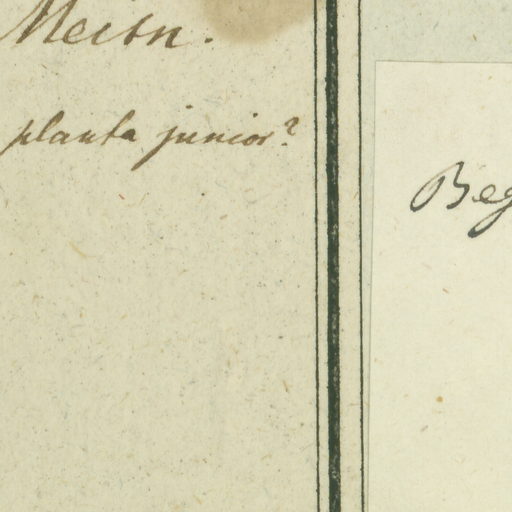 Meisn.
planta junior?
Beg